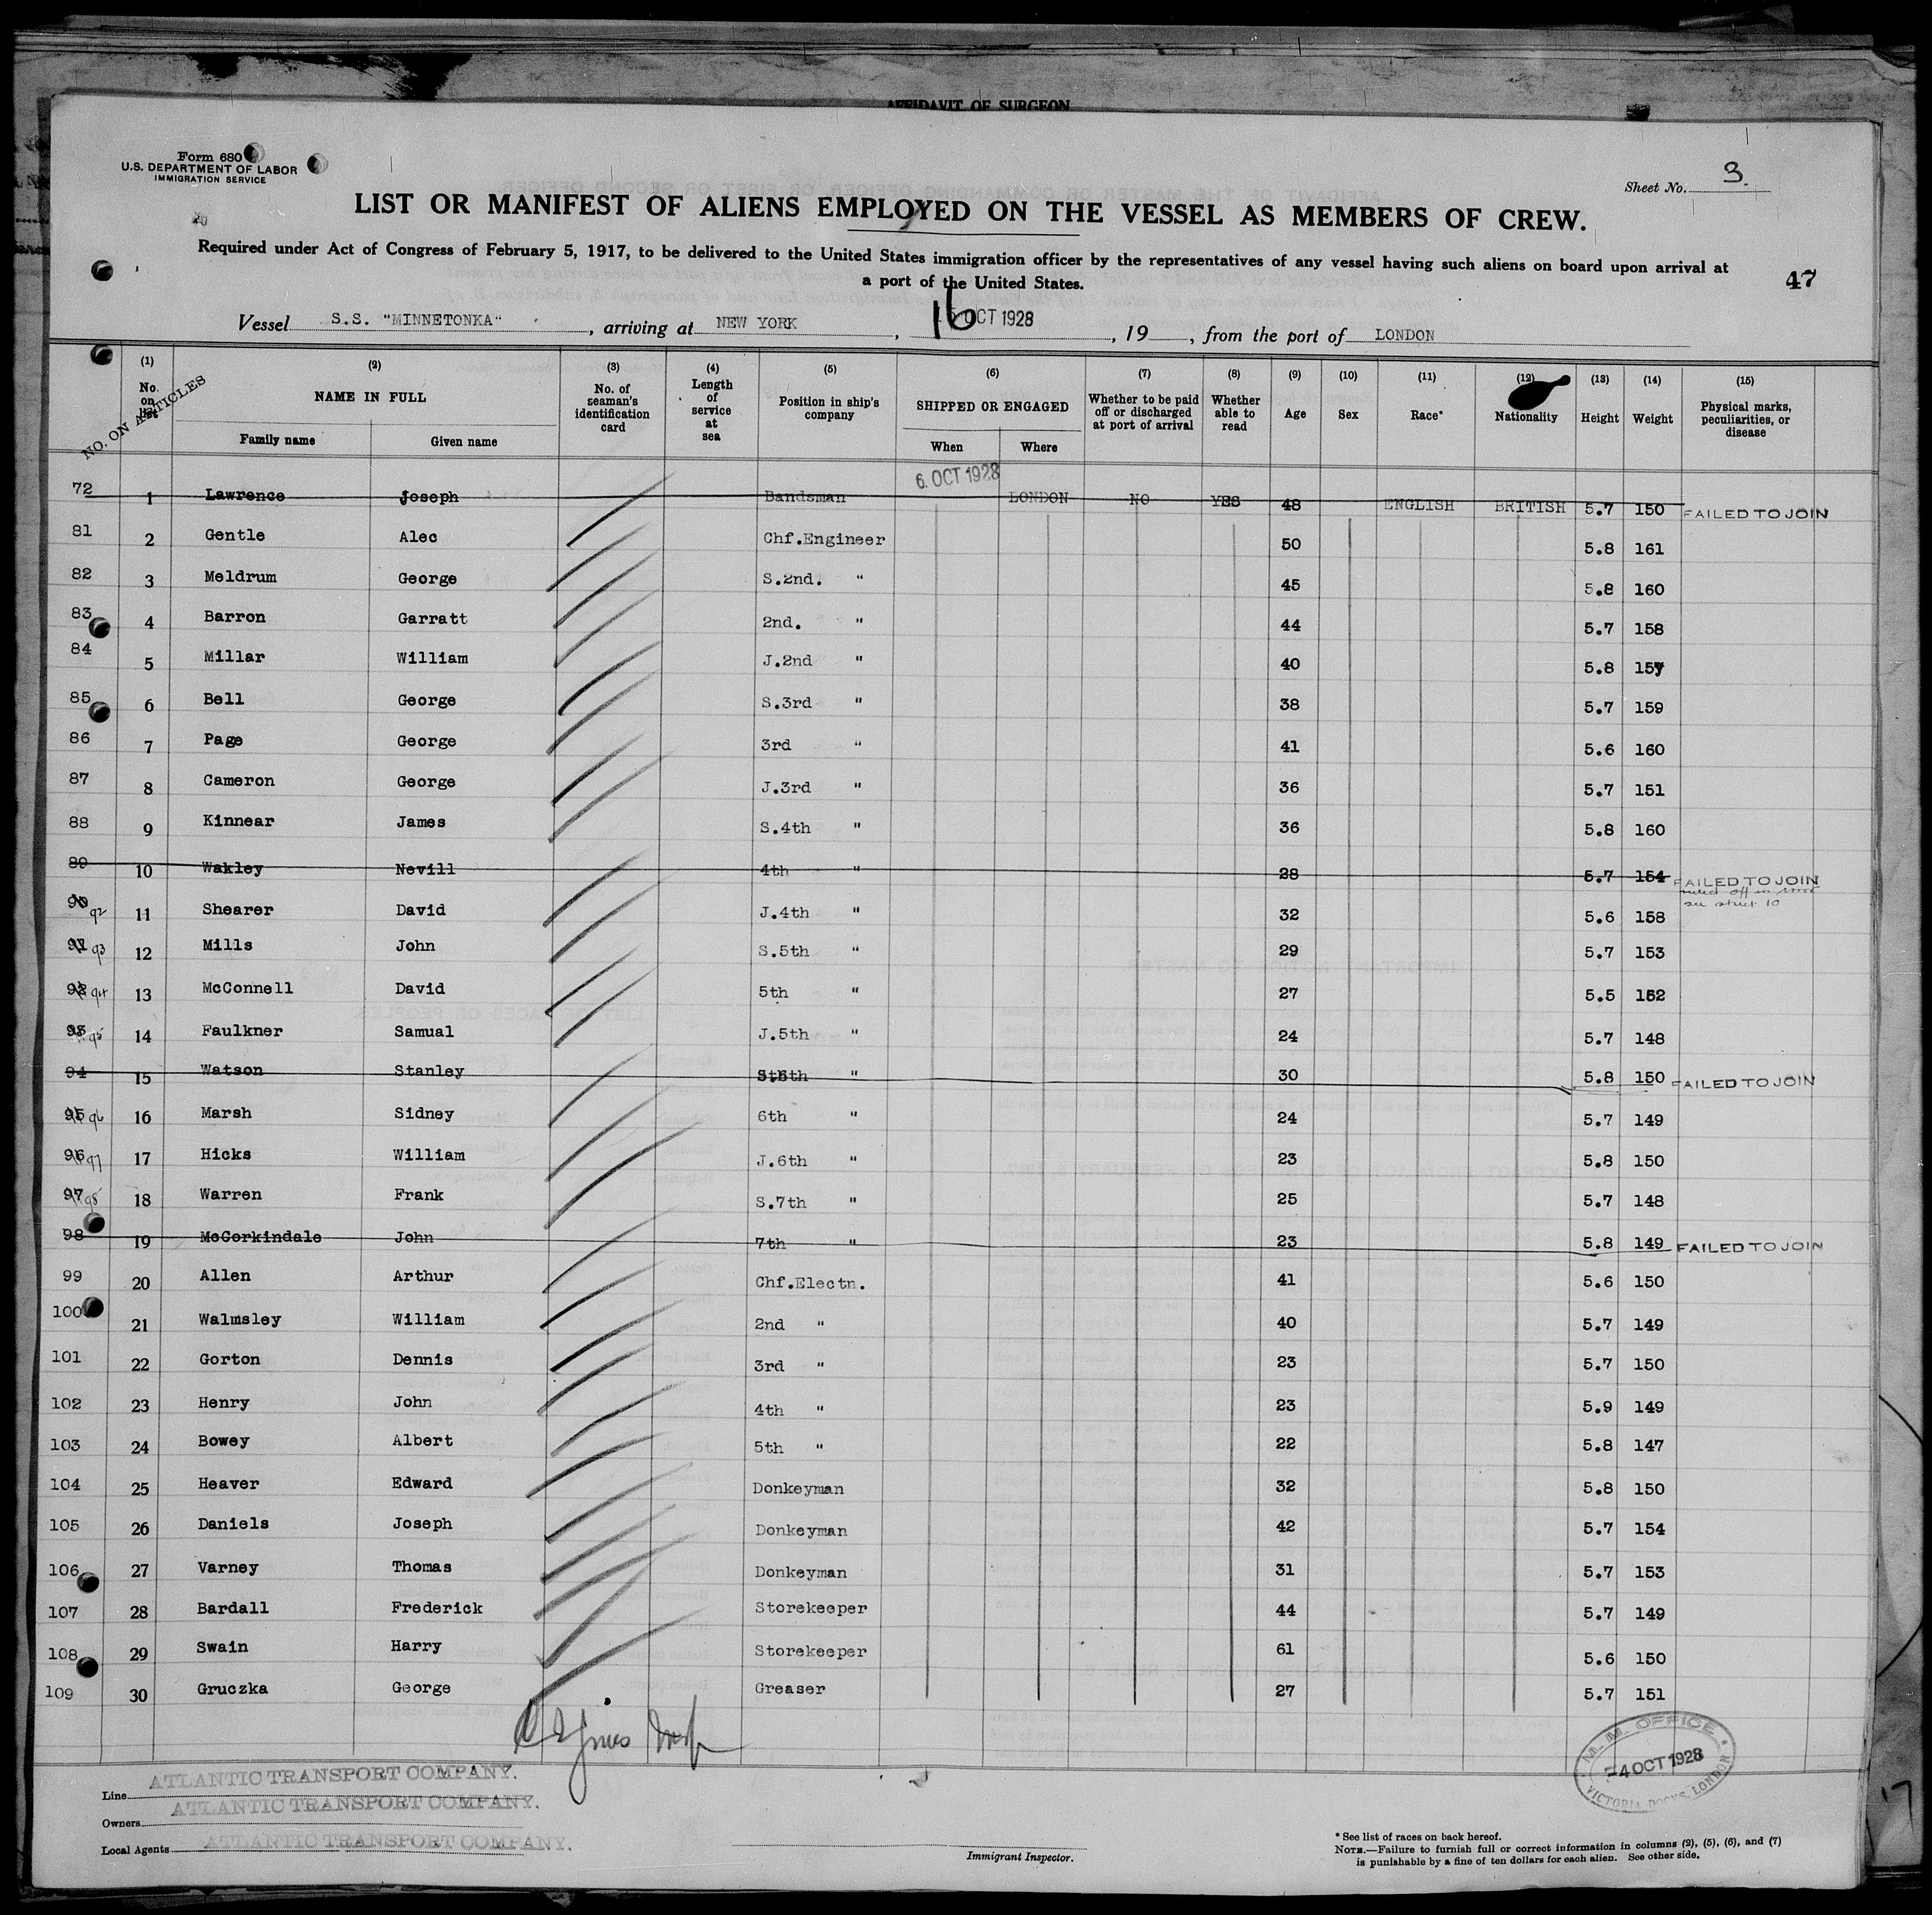 AFFIDAVIT OF SURGEON
Form 680
U.S. DEPARTMENT OF LABOR
IMMIGRATION SERVICE
Sheet No. 3.
LIST OR MANIFEST OF ALIENS EMPLOYED ON THE VESSEL AS MEMBERS OF CREW.
Required under Act of Congress of February 5, 1917, to be delivered to the United States immigration officer by the representatives of any vessel having such aliens on board upon arrival at
a port of the United States.
47
Vessel S.S. "MINNETONKA", arriving at NEW YORK, 16 OCT 1928, 19 , from the port of LONDON
NO. ON ARTICLES
(1) No. on list (2) NAME IN FULL Family name Given name (3) No. of seaman's identification card (4) Length of service at sea (5) Position in ship's company (6) SHIPPED OR ENGAGED When Where (7) Whether to be paid off or discharged at port of arrival (8) Whether able to read (9) Age (10) Sex (11) Race* (12) Nationality (13) Height (14) Weight (15) Physical marks, peculiarities, or disease
72 1 Lawrence Joseph Bandsman 6. OCT 1928 LONDON NO YES 48 ENGLISH BRITISH 5.7 150 FAILED TO JOIN
81 2 Gentle Alec Chf.Engineer 50 5.8 161
82 3 Meldrum George S.2nd. " 45 5.8 160
83 4 Barron Garratt 2nd. " 44 5.7 158
84 5 Millar William J.2nd " 40 5.8 157
85 6 Bell George S.3rd " 38 5.7 159
86 7 Page George 3rd " 41 5.6 160
87 8 Cameron George J.3rd " 36 5.7 151
88 9 Kinnear James S.4th " 36 5.8 160
89 10 Wakley Nevill 4th " 28 5.7 154 FAILED TO JOIN
ruled off in error
see sheet 10
90 92 11 Shearer David J.4th " 32 5.6 158
91 93 12 Mills John S.5th " 29 5.7 153
92 94 13 McConnell David 5th " 27 5.5 152
93 95 14 Faulkner Samual J.5th " 24 5.7 148
94 15 Watson Stanley S.6th " 30 5.8 150 FAILED TO JOIN
95 96 16 Marsh Sidney 6th " 24 5.7 149
96 97 17 Hicks William J.6th " 23 5.8 150
97 98 18 Warren Frank S.7th " 25 5.7 148
98 19 McCorkindale John 7th " 23 5.8 149 FAILED TO JOIN
99 20 Allen Arthur Chf.Electn. 41 5.6 150
100 21 Walmsley William 2nd " 40 5.7 149
101 22 Gorton Dennis 3rd " 23 5.7 150
102 23 Henry John 4th " 23 5.9 149
103 24 Bowey Albert 5th " 22 5.8 147
104 25 Heaver Edward Donkeyman 32 5.8 150
105 26 Daniels Joseph Donkeyman 42 5.7 154
106 27 Varney Thomas Donkeyman 31 5.7 153
107 28 Bardall Frederick Storekeeper 44 5.7 149
108 29 Swain Harry Storekeeper 61 5.6 150
109 30 Gruczka George Greaser 27 5.7 151
M. M. OFFICE
4 OCT 1928
VICTORIA DOCKS, LONDON
Line ATLANTIC TRANSPORT COMPANY.
Owners ATLANTIC TRANSPORT COMPANY.
Local Agents ATLANTIC TRANSPORT COMPANY.
Immigrant Inspector.
* See list of races on back hereof.
NOTE.—Failure to furnish full or correct information in columns (2), (5), (6), and (7)
is punishable by a fine of ten dollars for each alien. See other side.